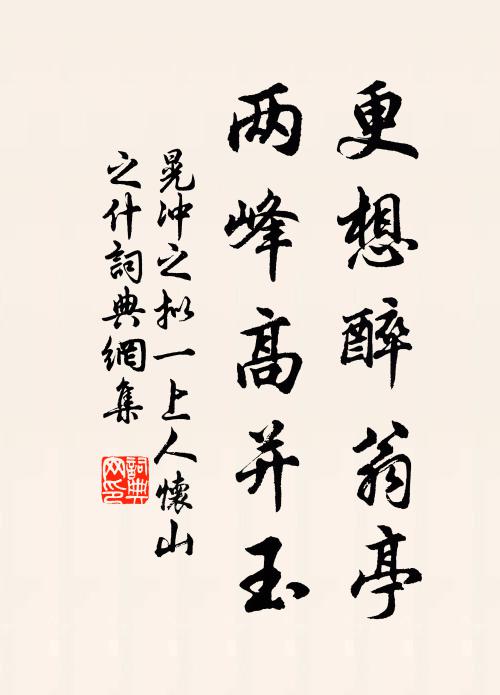 更想醉翁亭
两峰高并玉
晃冲之拟一上人懷山
之什詞典網集
詞典网印